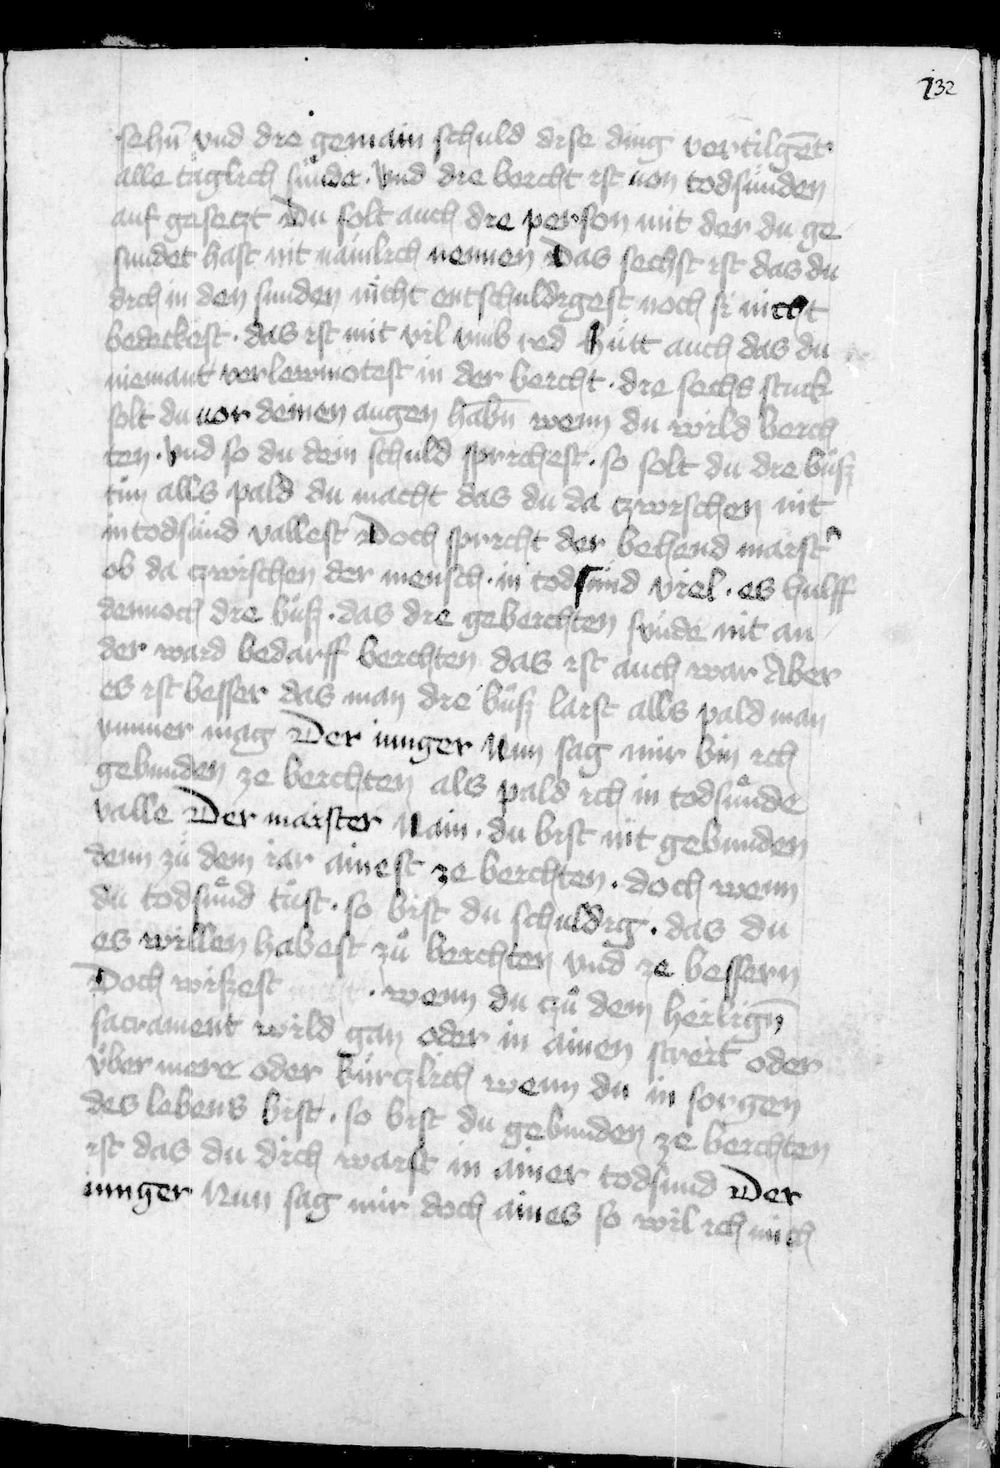 132
sehn̄ vnd die gemain schuld dise ding vertilgēt
alle täglich sůnde · vnd die beicht ist uon todsůnden
auf gesetzt Du solt auch die person mit der du ge
sundet hast nit nämlich nennen Das sechst ist das du
dich in den sunden nicht entschuldigest noch si nicht
bedeckist · das ist mit vil vmb red hütt auch das du
niemant verlewmotest in der beicht · die sechs stuck
solt du uor deinen augen habn̄ wenn du wild beich
ten · vnd so du dein schuld sprichest · so solt du die bůsz
tůn alls pald du macht das du da zwischen nit
in todsünd vallest Doch spricht der behend maist̾
ob da zwischen der mensch · in todsund viel · es hulff
dennoch die bůsz · das die gebeichten sünde nit an
der ward bedarff beichten das ist auch war Aber
es ist besser das man die bůsz laist alls pald man
ymmer mag Der iunger Nun sag mir bin ich
gebunden ze beichten als pald ich in todsůnde
valle Der maister Nain · du bist nit gebunden
denn zů dem iar ainest ze beichten · doch wenn
du todsůnd tůst · so bist du schuldig · das du
es willen habest zů beichten vnd ze bessern
Doch wiszest · wenn du zů dem heilign̄
sacrament wild gan oder in ainen streit oder
über mere oder kürczlich wenn du in sorgen
des lebens bist · so bist du gebunden ze beichten
ist das du dich waist in ainer todsund Der
iunger Nun sag mir doch aines so wil ich mich